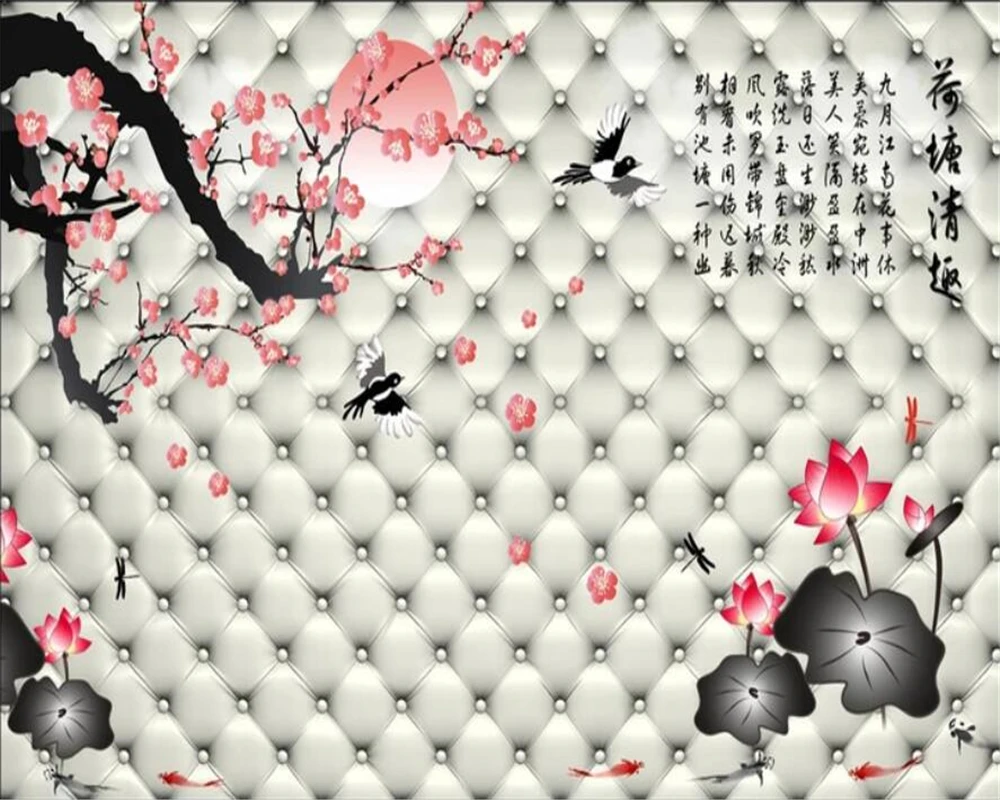 荷塘清趣
九月江南花事休
芙蓉宛转在中洲
美人笑隔盈盈水
落日还生渺渺愁
露洗玉盘金殿冷
风吹罗带锦城秋
相看未用伤迟暮
别有池塘一种幽